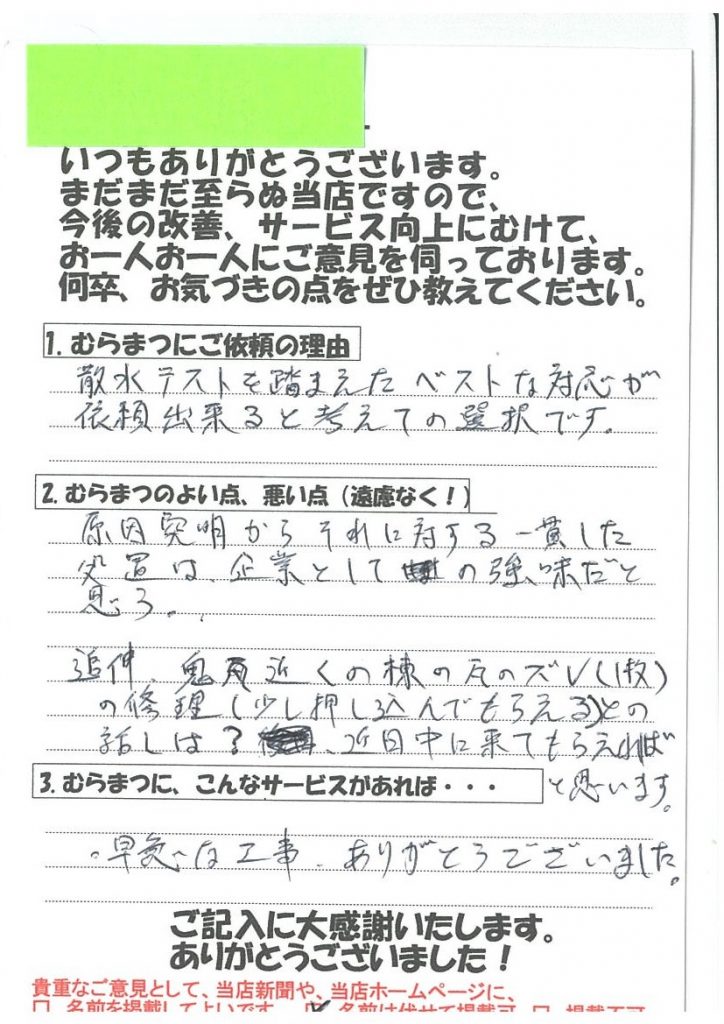 いつもありがとうございます。
まだまだ至らぬ当店ですので、
今後の改善、サービス向上にむけて、
お一人お一人にご意見を伺っております。
何卒、お気づきの点をぜひ教えてください。
1. むらまつにご依頼の理由
散水テストを踏まえたベストな対応が
依頼出来ると考えての選択です。
2. むらまつのよい点、悪い点（遠慮なく！）
原因究明からそれに対する一貫した
処置は、企業としての強味だと
思う。
追伸、鬼瓦近くの棟の瓦のズレ(1枚)
の修理(少し押し込んでもらえる)との
話しは？近日中に来てもらえれば
と思います。
3. むらまつに、こんなサービスがあれば・・・
早急な工事、ありがとうございました。
ご記入に大感謝いたします。
ありがとうございました！
貴重なご意見として、当店新聞や、当店ホームページに、
□ 名前を掲載してよいです ☑ 名前は伏せて掲載可 □ 掲載不可